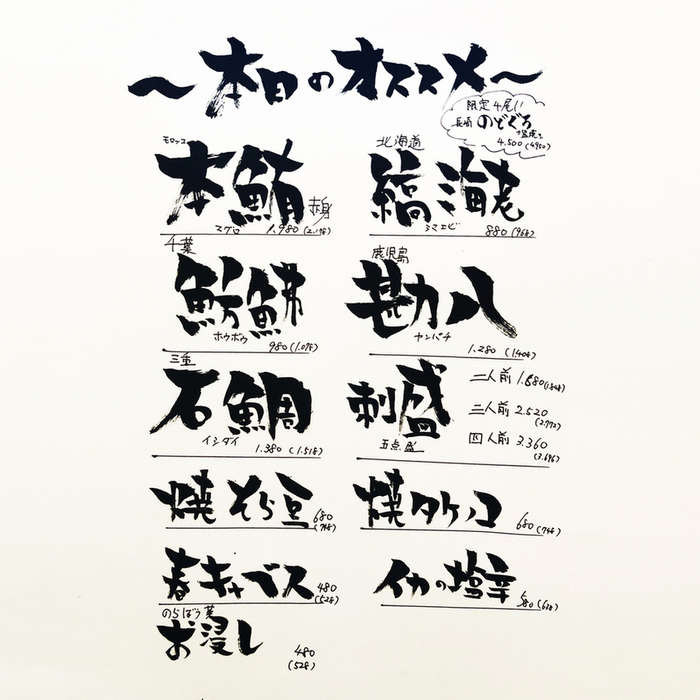 〜本日のオススメ〜
限定4尾!!
長崎 のどぐろ
塩焼き
4.500(4950)
モロッコ
本鮪 赤身
マグロ 1.980(2.178)
北海道
縞海老
シマエビ 880(968)
千葉
魴鮄
ホウボウ
980(1.078)
鹿児島
勘八
カンパチ
1.280(1.408)
三重
石鯛
イシダイ
1.380(1.518)
刺盛
五点盛
二人前 1.680(1.848)
三人前 2.520
(2.772)
四人前 3.360
(3.696)
焼そら豆 680
(748)
焼タケノコ 680(748)
春キャベツ 480
(528)
イカの塩辛 580(638)
のらぼう菜
お浸し 480
(528)